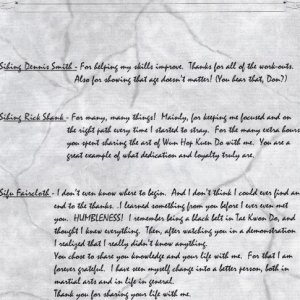 Sihing Dennis Smith - For helping my skills improve. Thanks for all of the work-outs.
Also for showing that age doesn't matter! (You hear that, Don?)
Sihing Rick Shank - For many, many things! Mainly, for keeping me focused and on
the right path every time I started to stray. For the many extra hours
you spent sharing the art of Wun Hop Kuen Do with me. You are a
great example of what dedication and loyalty truly are.
Sifu Faircloth - I don't even know where to begin. And I don't think I could ever find an
end to the thanks. .I learned something from you before I ever even met
you. HUMBLENESS! I remember being a black belt in Tae Kwon Do, and
thought I knew everything. Then, after watching you in a demonstration
I realized that I really didn't know anything.
You chose to share you knowledge and your life with me. For that I am
forever grateful. I have seen myself change into a better person, both in
martial arts and in life in general.
Thank you for sharing your life with me.